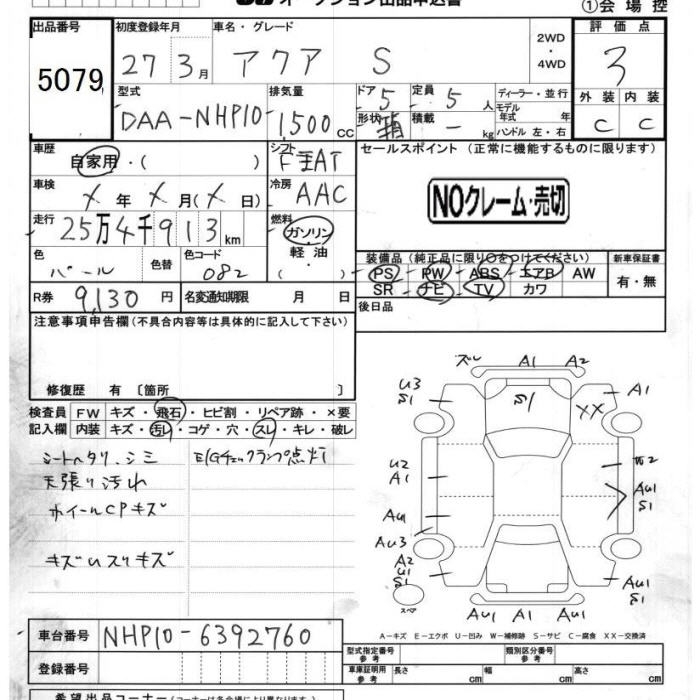 オークション出品申込書
①会場控
出品番号
5079
初度登録年月
27 3月
車名・グレード
アクア S
2WD
・
4WD
評価点
3
外装 内装
C C
型式
DAA-NHP10-
排気量
1,500cc
ドア 5
定員 5人
形状
積載 - kg
ディーラー・並行
モデル年式 年
ハンドル 左・右
車歴
自家用・( )
シフト
F AT
車検
X年 X月(X日)
冷房
AAC
走行
25万4千913km
燃料
ガソリン
軽油
( )
色
パール
色替
色カラーコード
082
R券 9,130円
名変通知期限 月 日
セールスポイント (正常に機能するものに限ります)
NOクレーム・売切
装備品(純正品に限り○をつけてください)
PS PW ABS エアB AW
SR ナビ TV カワ
新車保証書
有・無
後日品
注意事項申告欄(不具合内容等は具体的に記入して下さい)
修復歴 有〔箇所 〕
検査員記入欄
FW キズ・飛石・ヒビ割・リペア跡・×要
内装 キズ・汚れ・コゲ・穴・スレ・キレ・破レ
シートヘタリ、シミ
E/Gチェックランプ点灯
天張り汚れ
ホイールCPキズ
キズUスリキズ
ズレ A1 A2
U3 S1
S1
XX
A1
U2 A1
A2
AU1
AU1 S1
AU3
A2 U1 S1
AU1 S1
スペア
AU1 A1 AU1
A-キズ E-エクボ U-凹み W-補修跡 S-サビ C-腐食 XX-交換済
車台番号 NHP10-6392760
登録番号
型式指定番号 参考
類別区分番号 参考
車庫証明用 参考 長さ cm 幅 cm 高さ cm
希望出品コーナー(コーナーは各会場により異なります)